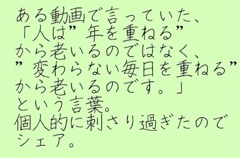 ある動画で言っていた、
「人は”年を重ねる”
から老いるのではなく、
”変わらない毎日を重ねる”
から老いるのです。」
という言葉。
個人的に刺さり過ぎたので
シェア。